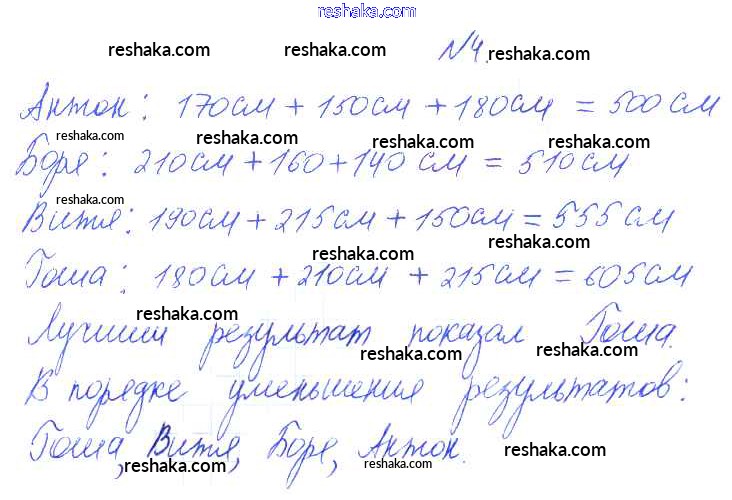 reshaka.com
reshaka.com reshaka.com №4. reshaka.com
Антон: 170см + 150см + 180см = 500см
reshaka.com reshaka.com reshaka.com reshaka.com
Боря: 210см + 160 + 140 см = 510см
reshaka.com reshaka.com reshaka.com
Витя: 190см + 215см + 150см = 555 см
reshaka.com reshaka.com
Гоша: 180см + 210см + 215см = 605см
reshaka.com reshaka.com
Лучший результат показал Гоша.
reshaka.com reshaka.com
В порядке уменьшения результатов:
reshaka.com reshaka.com
Гоша, Витя, Боря, Антон.
reshaka.com reshaka.com